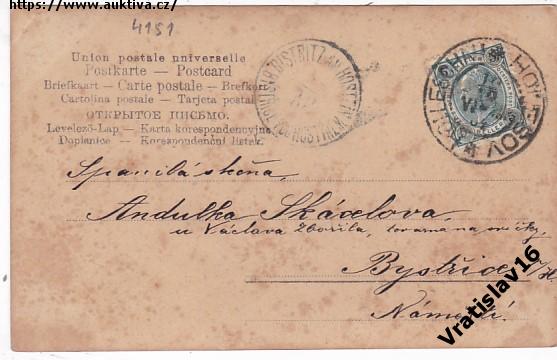 https://www.auktiva.cz/
4151
Union postale universelle
Postkarte — Postcard
Briefkaart — Carte postale — Brefkort
Cartolina postale — Tarjeta postal
ОТКРЫТОЕ ПИСЬМО.
Levelező-Lap — Karta korespondencyjna
Dopisnice — Korespondenční lístek.
Spanilá slečna,
Andulka Skácelova,
u Václava Zbořila, tovarna na
Bystřice
Náměstí
Vratislav16